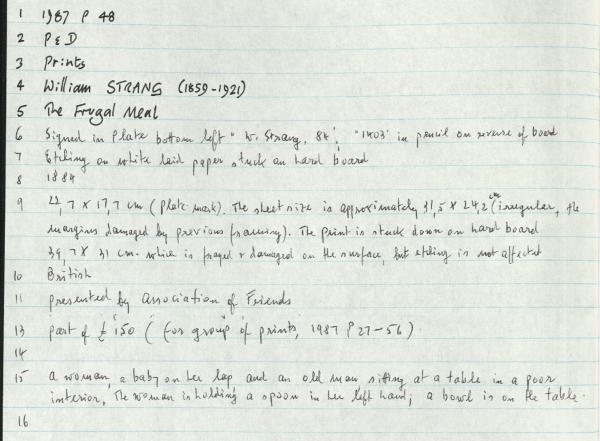 1 1987 P 48
2 P & D
3 Prints
4 William STRANG (1859-1921)
5 The Frugal Meal
6 Signed in plate bottom left "W. Strang, 84"; "1403" in pencil on reverse of board
7 Etching on white laid paper stuck on hard board
8 1884
9 22,7 x 17,7 cm (plate mark). The sheet size is approximately 31,5 x 24,2 cm (irregular, the
margins damaged by previous framing). The print is stuck down on hard board
39,7 x 31 cm. which is frayed & damaged on the surface, but etching is not affected
10 British
11 presented by Association of Friends
13 part of £150 (for group of prints, 1987 P 27-56)
14
15 a woman, a baby on her lap and an old man sitting at a table in a poor
interior, The woman is holding a spoon in her left hand; a bowl is on the table.
16